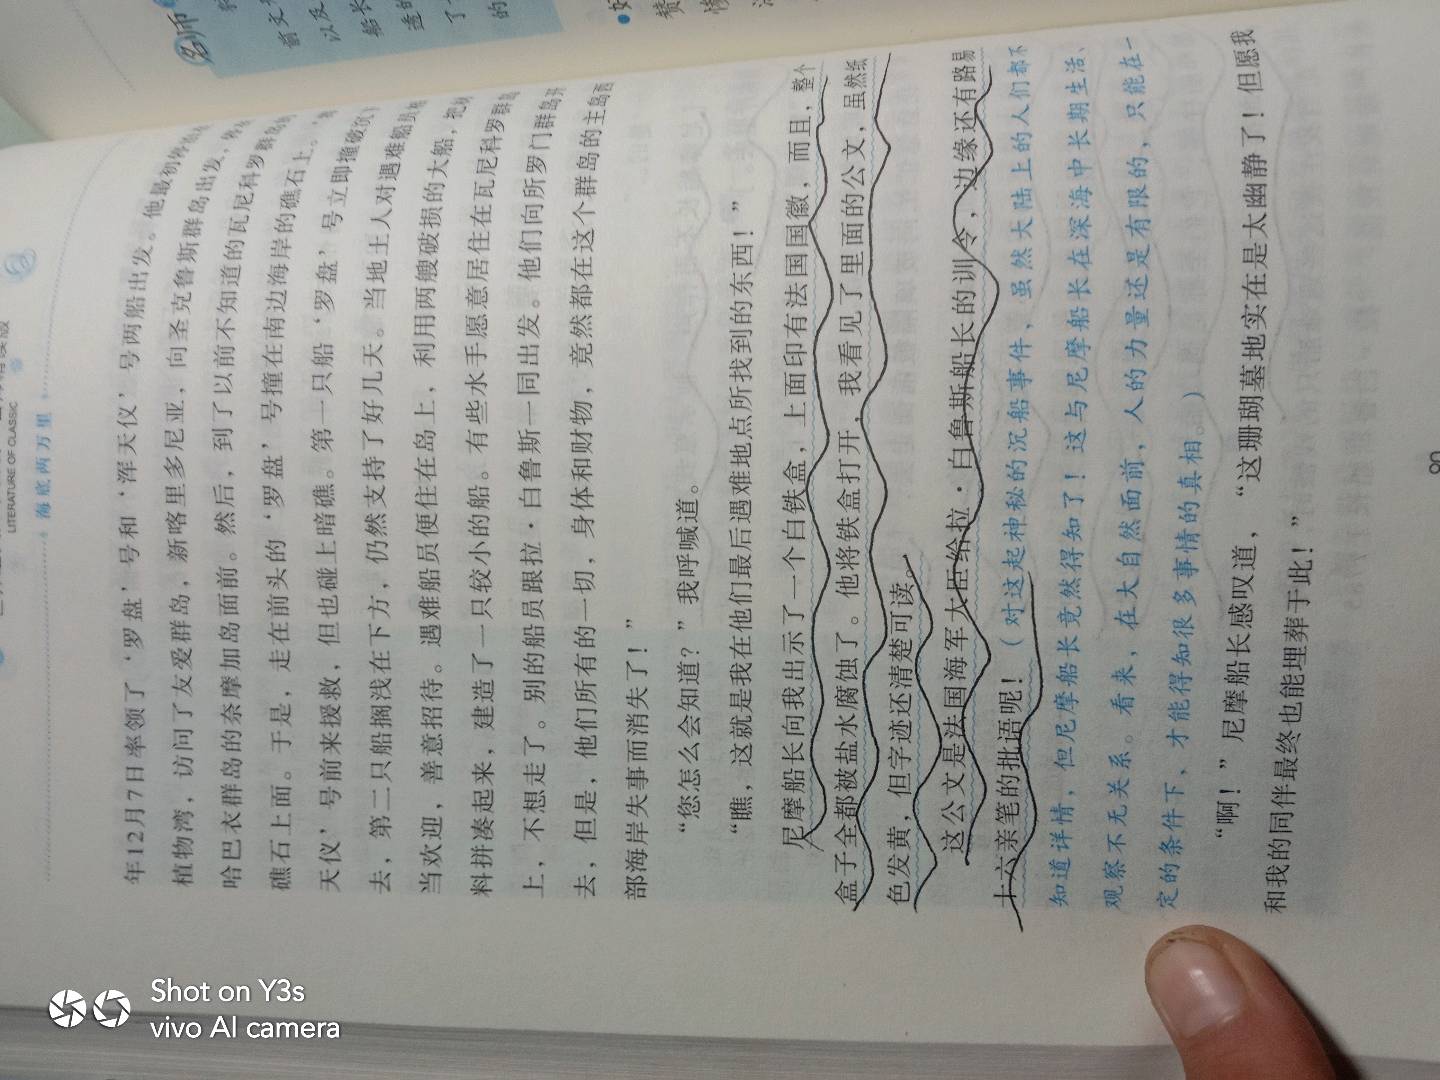 LITERATURE OF CLASSIC
海底两万里
年12月7日率领了‘罗盘’号和‘浑天仪’号两船出发。他最初停泊在
植物湾，访问了友爱群岛，新喀里多尼亚，向圣克鲁斯群岛出发，停在
哈巴衣群岛的奈摩加岛面前。然后，到了以前不知道的瓦尼科罗群岛的
礁石上面。于是，走在前头的‘罗盘’号撞在南边海岸的礁石上。
天仪’号前来援救，但也碰上暗礁。第一只船‘罗盘’号立即撞破沉下
去，第二只船搁浅在下方，仍然支持了好几天。当地土人对遇难船员相
当欢迎，善意招待。遇难船员便住在岛上，利用两艘破损的大船，把材
料拼凑起来，建造了一只较小的船。有些水手愿意居住在瓦尼科罗群岛
上，不想走了。别的船员跟拉·白鲁斯一同出发。他们向所罗门群岛开
去，但是，他们所有的一切，身体和财物，竟然都在这个群岛的主岛西
部海岸失事而消失了！”
“您怎么会知道？”我呼喊道。
“瞧，这就是我在他们最后遇难地点所找到的东西！”
尼摩船长向我出示了一个白铁盒，上面印有法国国徽，而且，整个
盒子全都被盐水腐蚀了。他将铁盒打开，我看见了里面的公文，虽然纸
色发黄，但字迹还清楚可读。
这公文是法国海军大臣给拉·白鲁斯船长的训令，边缘还有路易
十六亲笔的批语呢！（对这起神秘的沉船事件，虽然大陆上的人们都不
知道详情，但尼摩船长竟然得知了！这与尼摩船长在深海中长期生活、
观察不无关系。看来，在大自然面前，人的力量还是有限的，只能在一
定的条件下，才能得知很多事情的真相。）
“啊！”尼摩船长感叹道，“这珊瑚墓地实在是太幽静了！但愿我
和我的同伴最终也能埋葬于此！”
90
名师
前文
以及
船长
Shot on Y3s
vivo AI camera